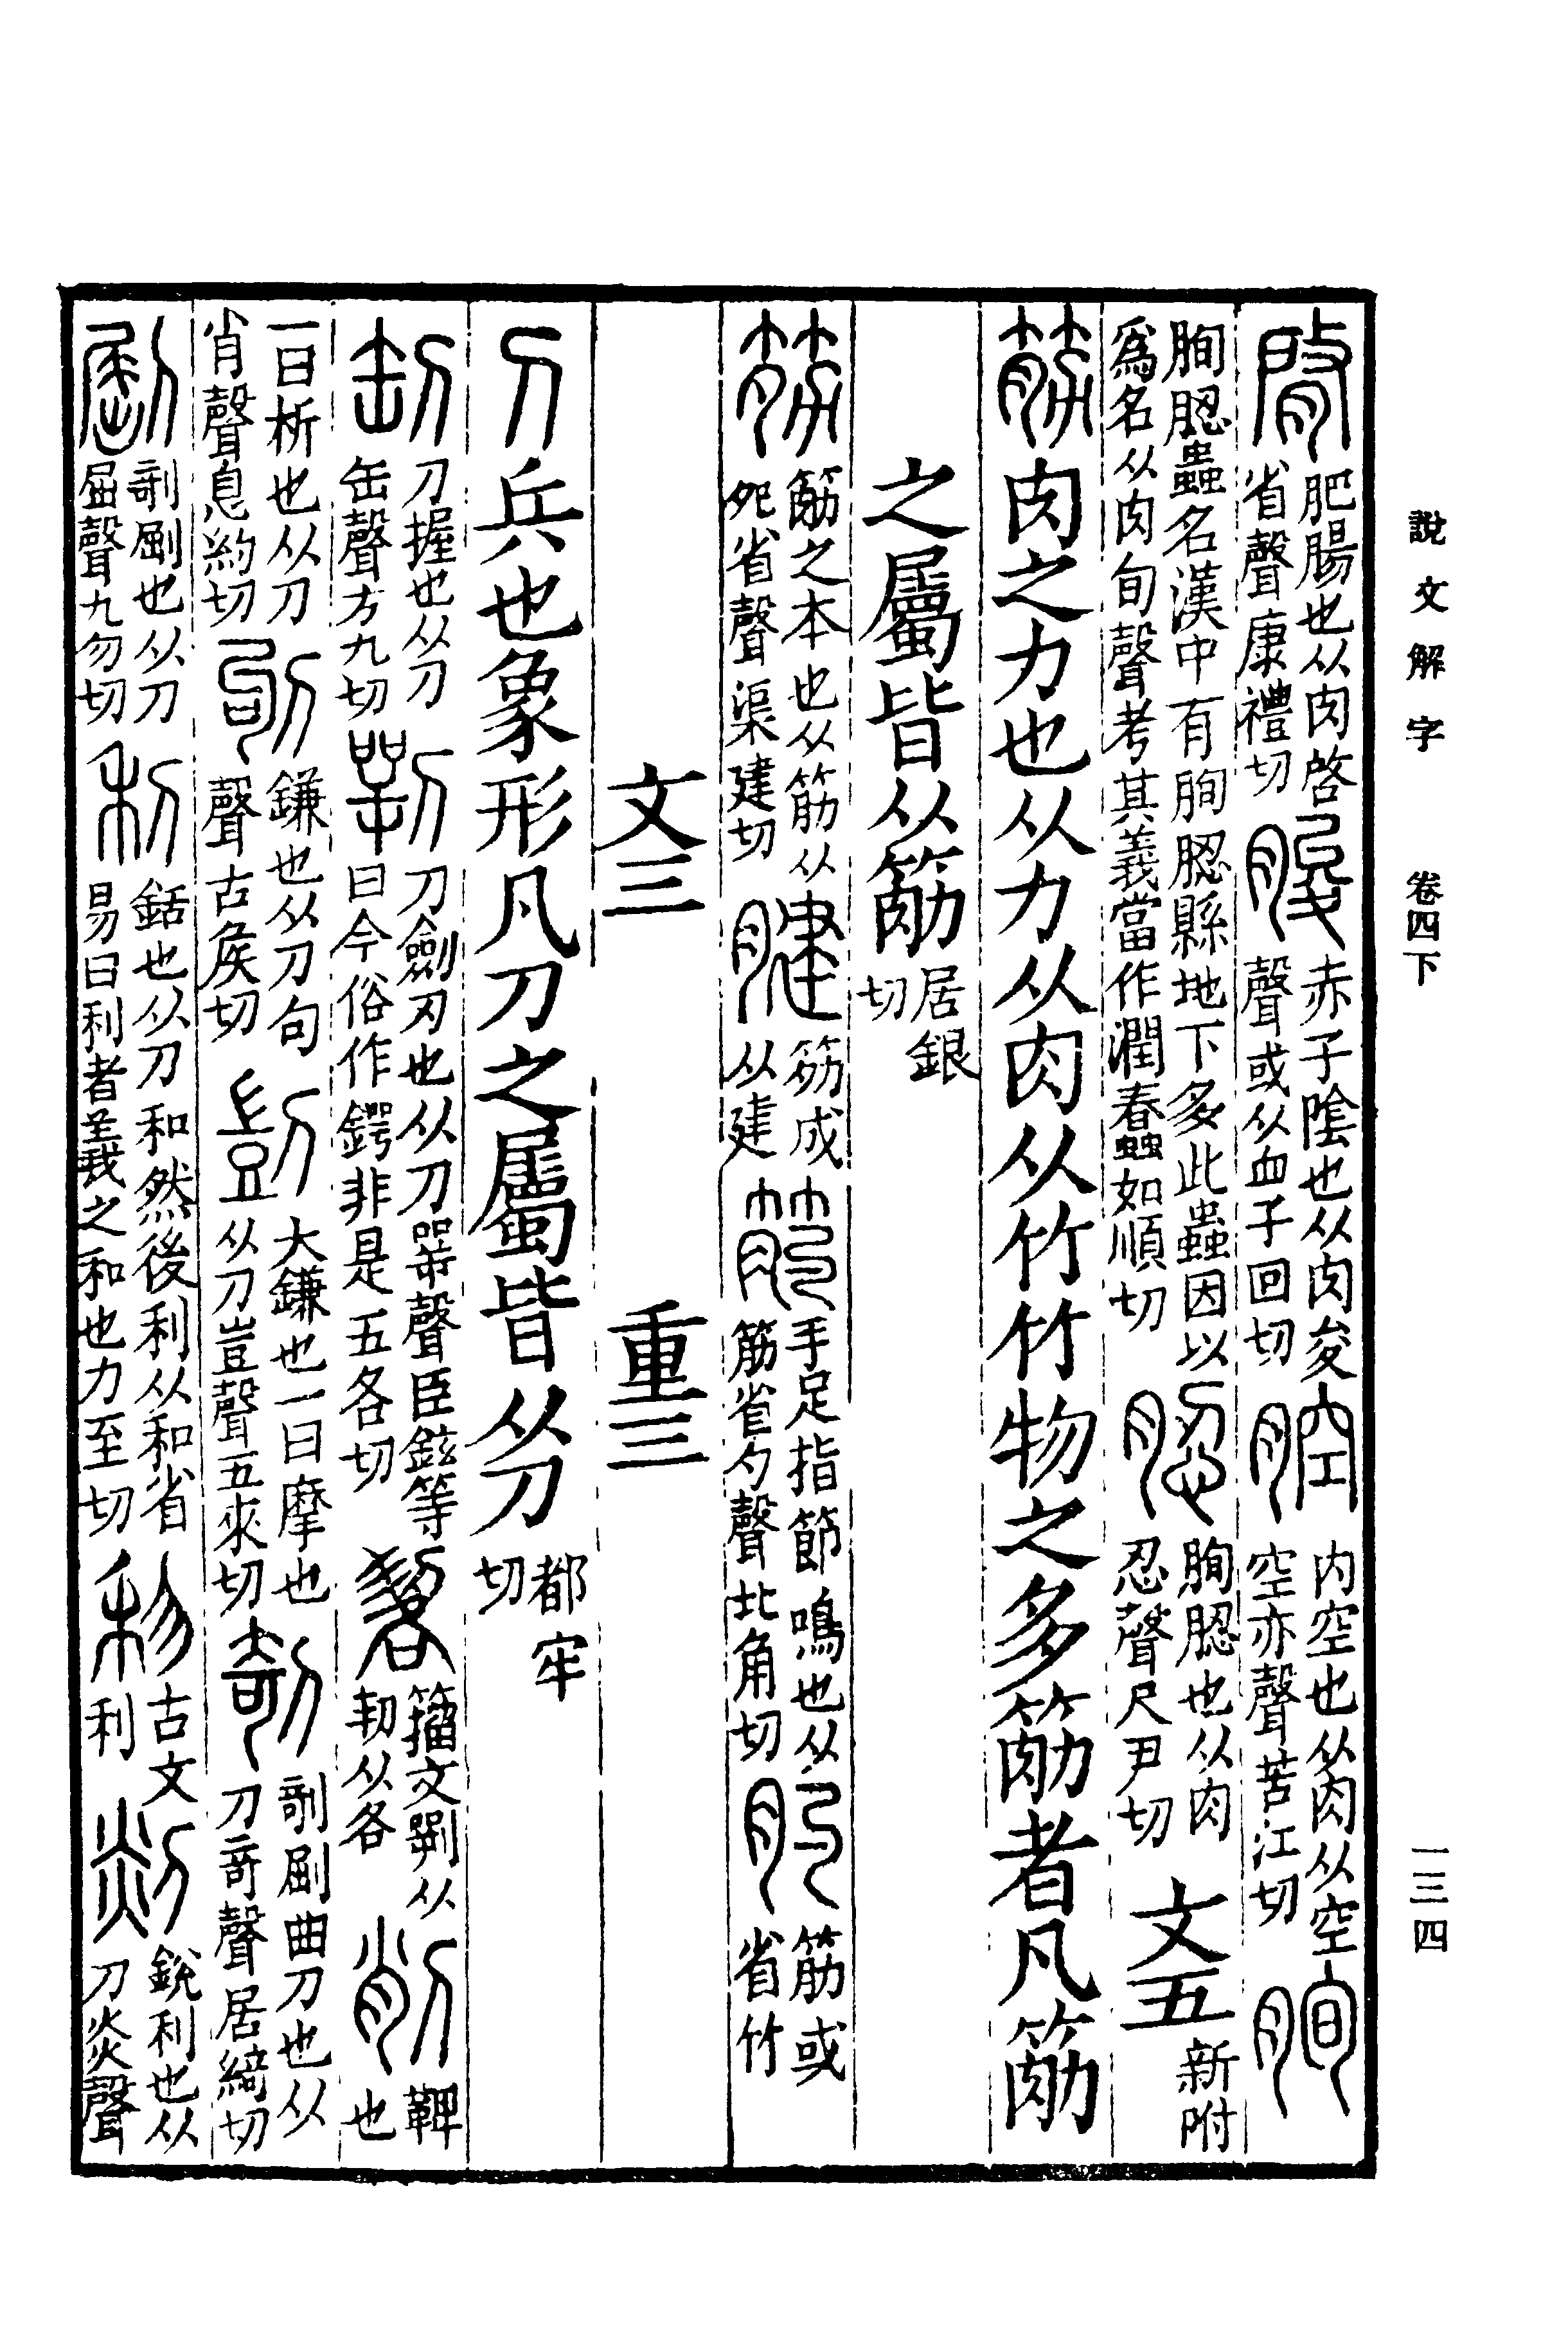 說文解字　卷四下　一三四
𦜝肥腸也从肉啓省聲康禮切　朘赤子陰也从肉夋聲或从血子回切　腔内空也从肉从空空亦聲苦江切　朐
朐䏰蟲名漢中有朐䏰縣地下多此蟲因以爲名从肉旬聲考其義當作潤蠢如順切　䏰朐䏰也从肉忍聲尺尹切　文五新附
筋肉之力也从力从肉从竹竹物之多筋者凡筋
之屬皆从筋居銀切
笏筋之本也从筋从夗省聲渠建切　腱笏或从建　筋手足指節鳴也从筋省勺聲北角切　肑筋或省竹
文三　重三
刀兵也象形凡刀之屬皆从刀都牢切
𠛐刀握也从刀缶聲方九切　㓵刀劒刃也从刀㖾聲臣鉉等曰今俗作鍔非是五各切　㓷籒文㓵从㓞从各　削鞞也
一曰析也从刀肖聲息約切　刏鎌也从刀句聲古矦切　剴大鎌也一曰摩也从刀豈聲五來切　剞剞剧曲刀也从刀奇聲居綺切
剧剞剧也从刀屈聲九勿切　利銛也从刀和然後利从和省易曰利者義之和也力至切　𥝢古文利　剡銳利也从刀炎聲